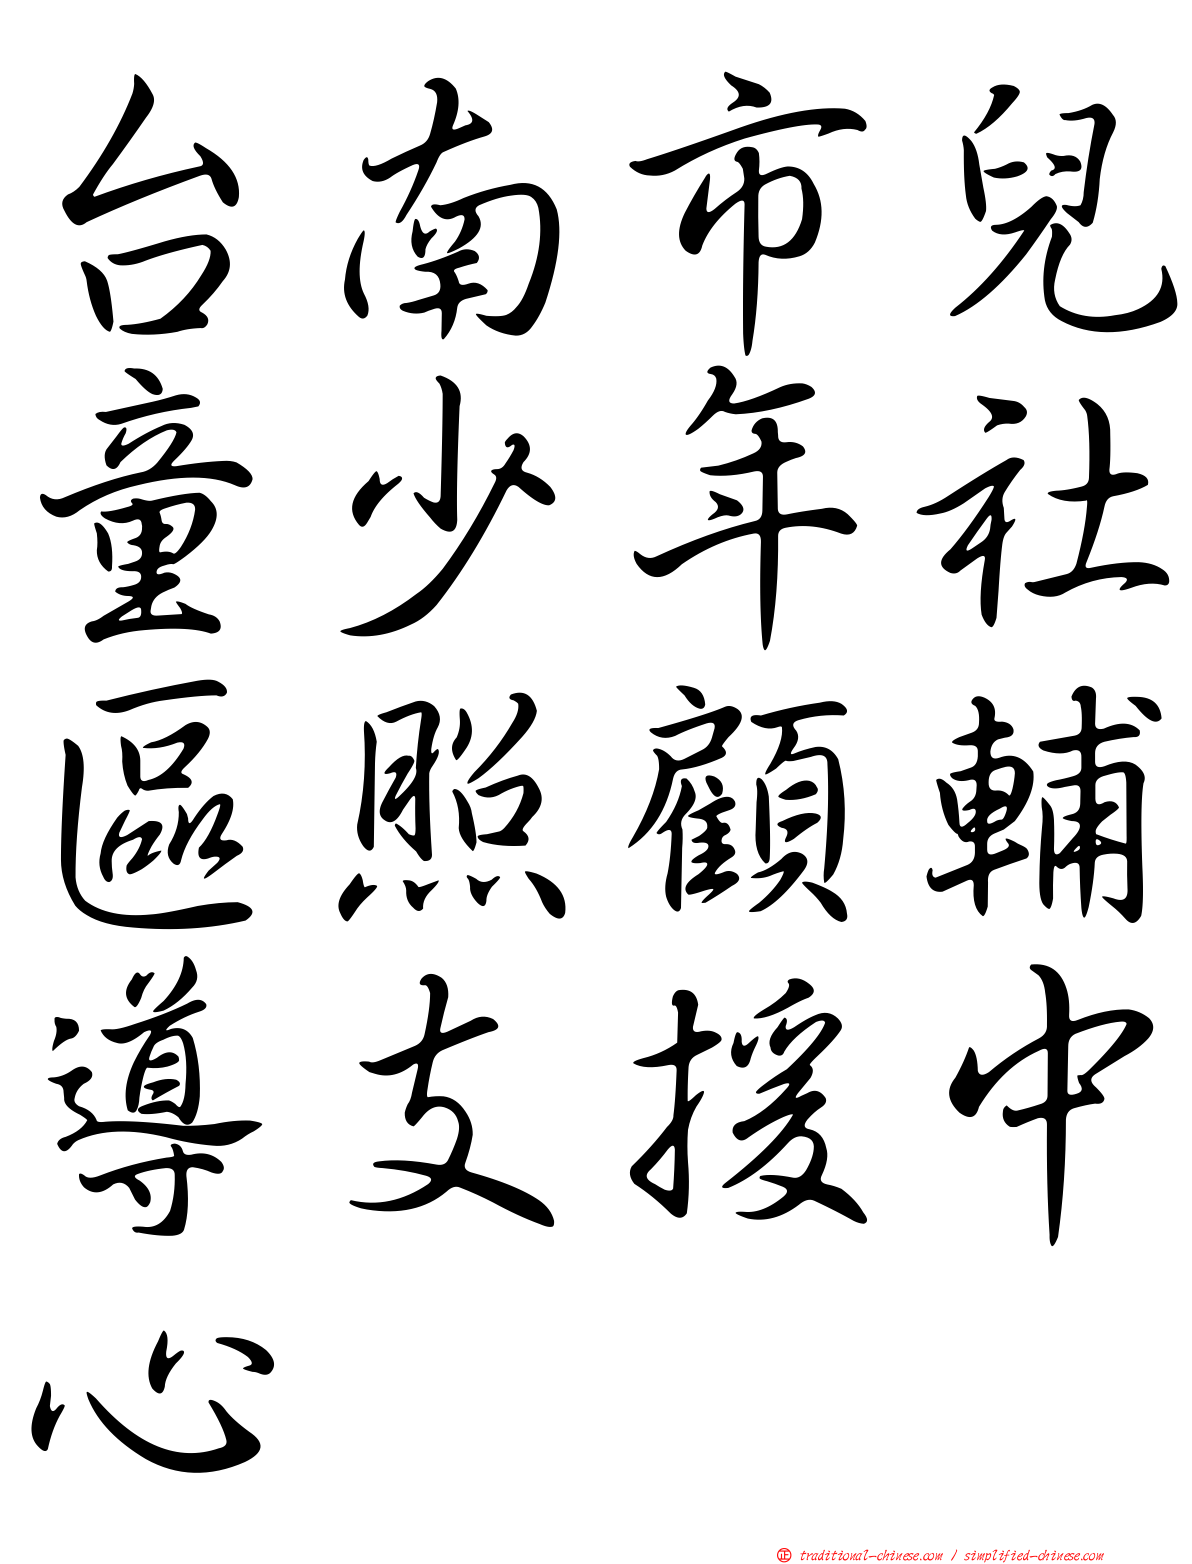 台南市兒
童少年社
區照顧輔
導支援中
心
正 traditional-chinese.com / simplified-chinese.com